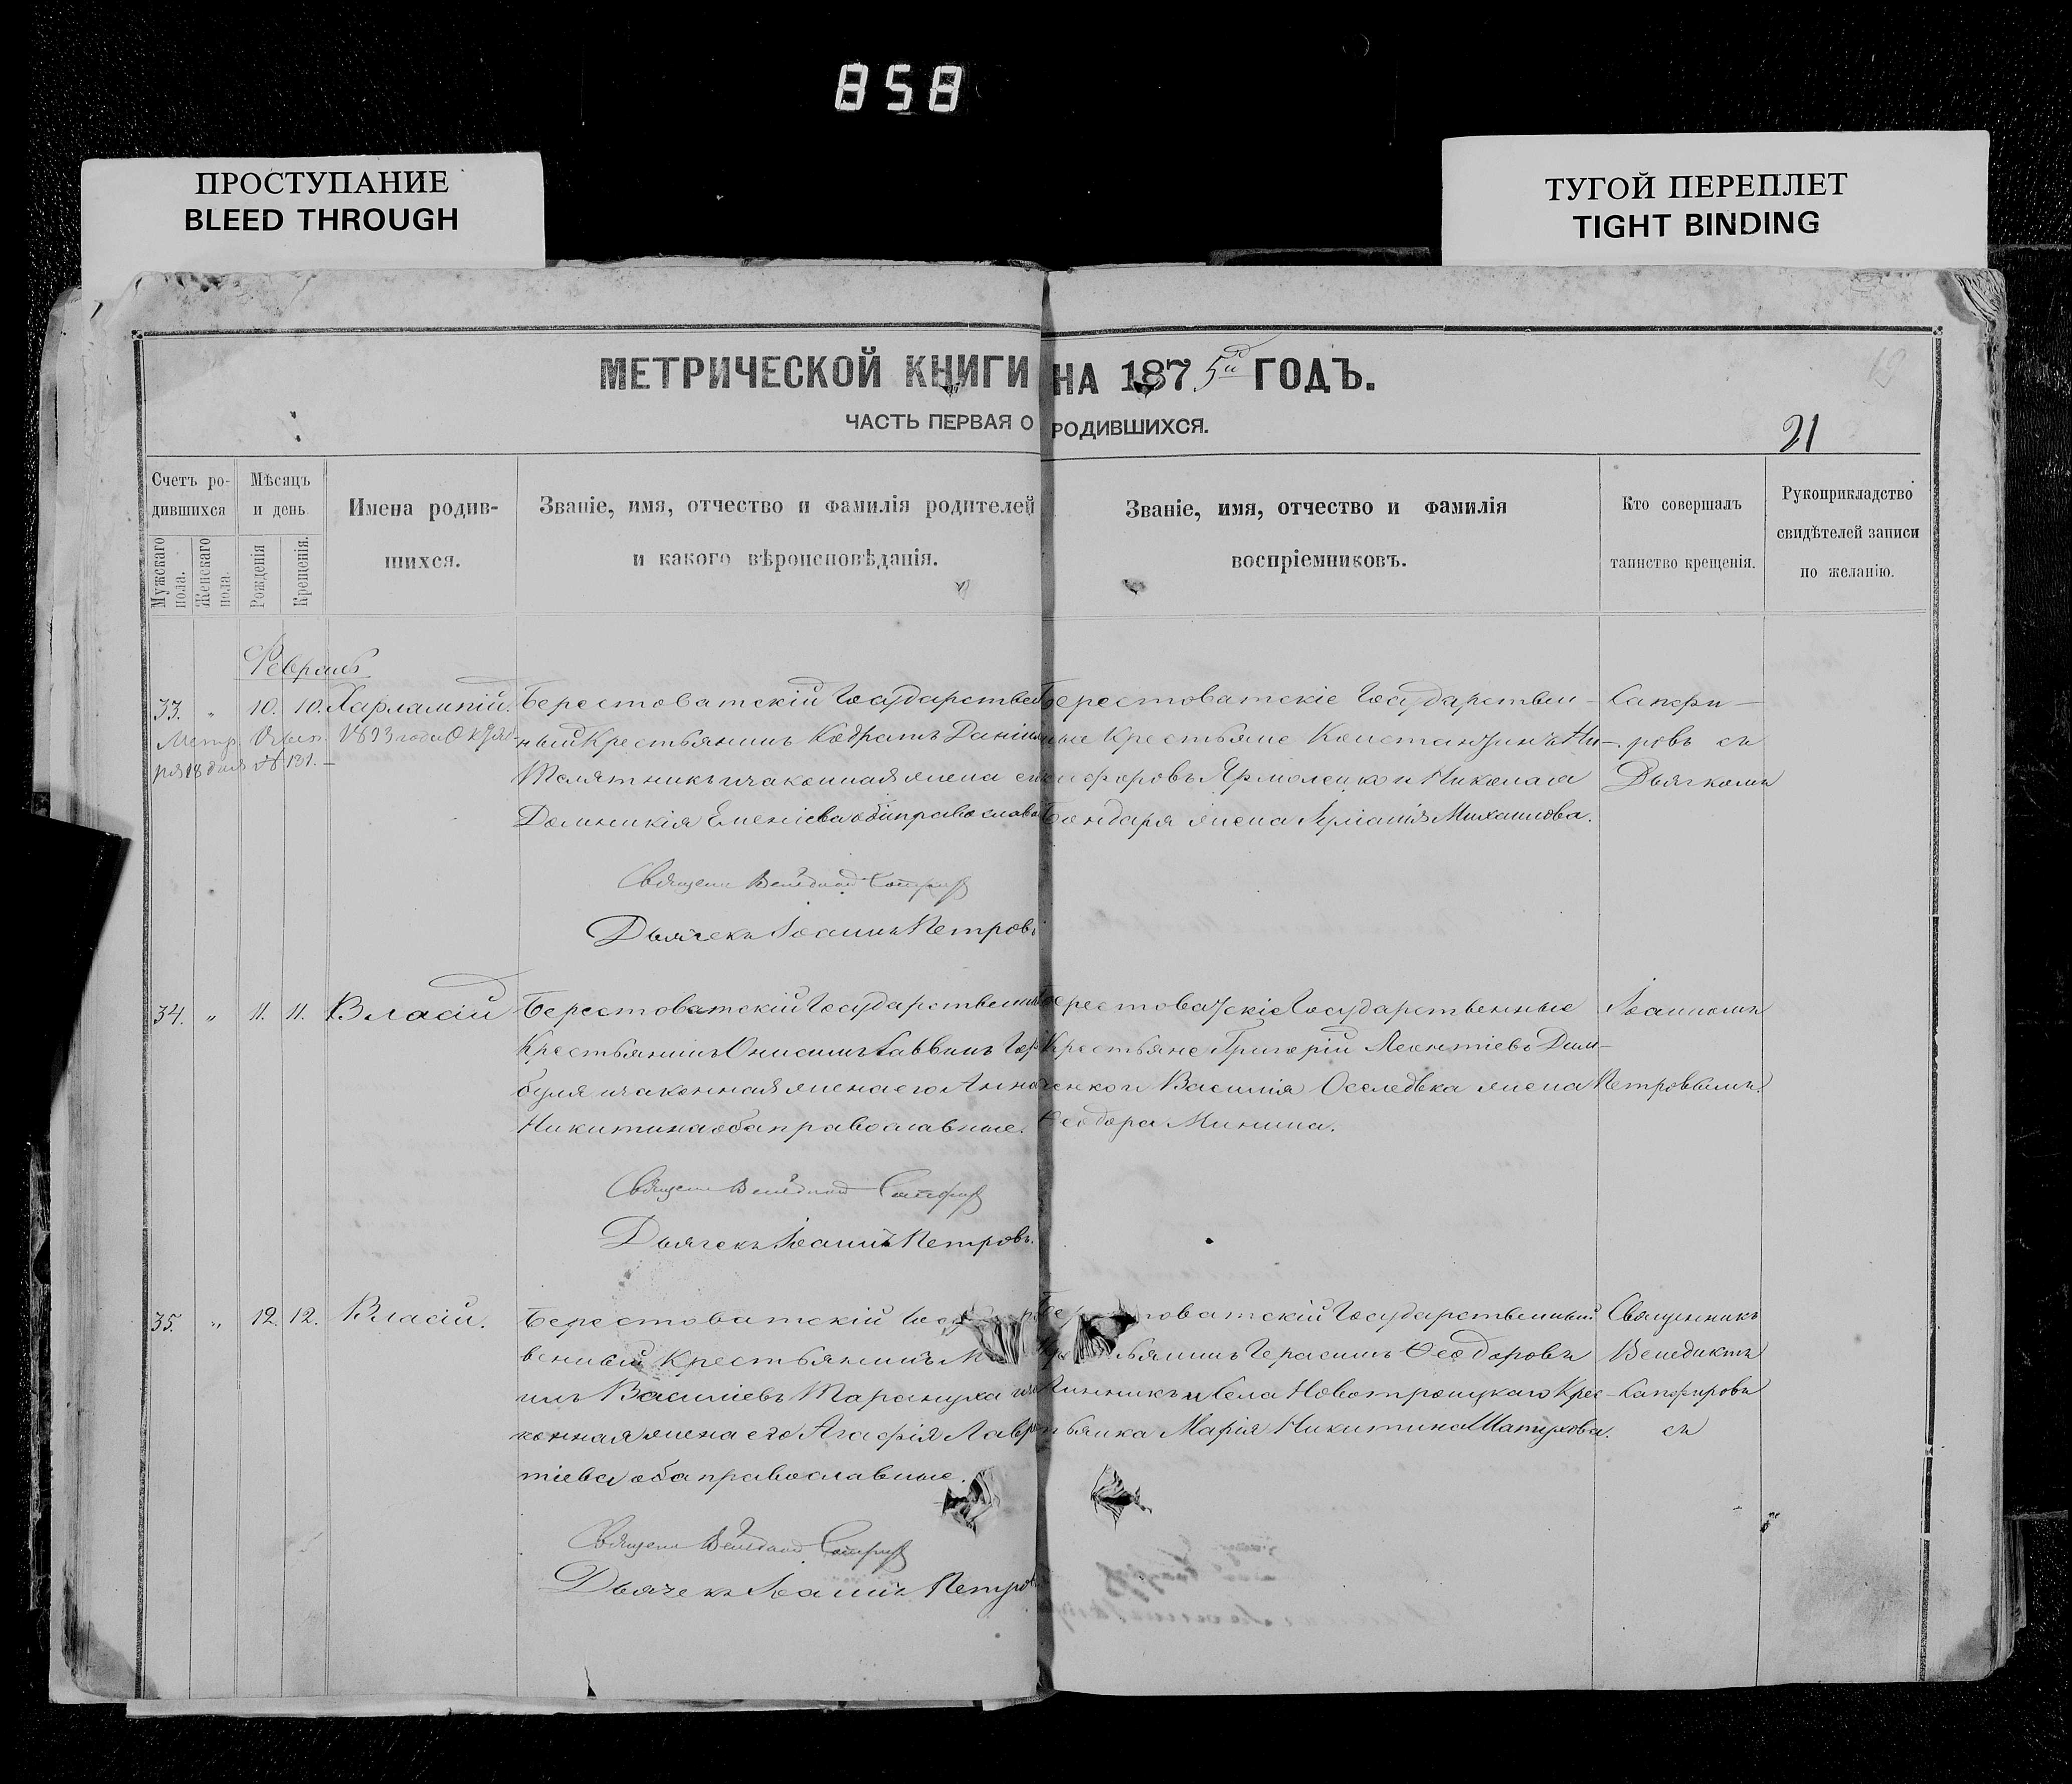 858
ПРОСТУПАНИЕ
BLEED THROUGH
ТУГОЙ ПЕРЕПЛЕТ
TIGHT BINDING
МЕТРИЧЕСКОЙ КНИГИ НА 1875й ГОДЪ.
ЧАСТЬ ПЕРВАЯ О РОДИВШИХСЯ.
21
Счетъ ро-
дившихся
Мужскаго пола.
Женскаго пола.
Мѣсяцъ
и день
Рожденія
Крещенія.
Имена родив-
шихся.
Званіе, имя, отчество и фамилія родителей
и какого вѣроисповѣданія.
Званіе, имя, отчество и фамилія
воспріемниковъ.
Кто совершалъ
таинство крещенія.
Рукоприкладство
свидѣтелей записи
по желанію.
Февраль
33. " 10. 10. Харлампій.
1893 года Октяб-
ря 18 дня № 131.
Берестоватскій Государствен
ный Крестьянинъ Кодратъ
Телятникъ и законная жена
Домникія обаправослав
Священ Бенедиктъ Сапфировъ
Дьячекъ Іоаннъ Петровъ
Берестоватскіе Государствен-
ные Крестьяне Константинъ Ни-
кифоровъ Ярмоленко и Николая
Бондаря жена Михаилова.
Сапфи-
ровъ съ
Дьячкомъ
34. " 11. 11. Власій
Берестоватскій Государственный
Крестьянинъ Онисимъ Саввинъ Гор
буля и законная жена его Анна
Никитина оба православные.
Священ Бенедиктъ Сапфировъ
Дьячекъ Іоаннъ Петровъ.
Берестоватскіе Государственные
Крестьяне Григорій Леонтіевъ Дем-
ченко и Василія Оселедька жена
Ѳеодора Минина.
Іоанномъ
Петровымъ.
35. " 12. 12. Власій.
Берестоватскій
венный Крестьянинъ
имъ Василіевъ Тарануха и за
конная жена его Агафія Лаврен
тіева оба православные.
Священ Бенедиктъ Сапфировъ
Дьячекъ Іоаннъ Петров
Берестоватскій Государственный
Крестьянинъ Герасимъ Ѳеодоровъ
Винникъ и Села Новотроицкаго Крес-
тьянка Марія Никитина Шатухова.
Священникъ
Венедиктъ
Сапфировъ
съ